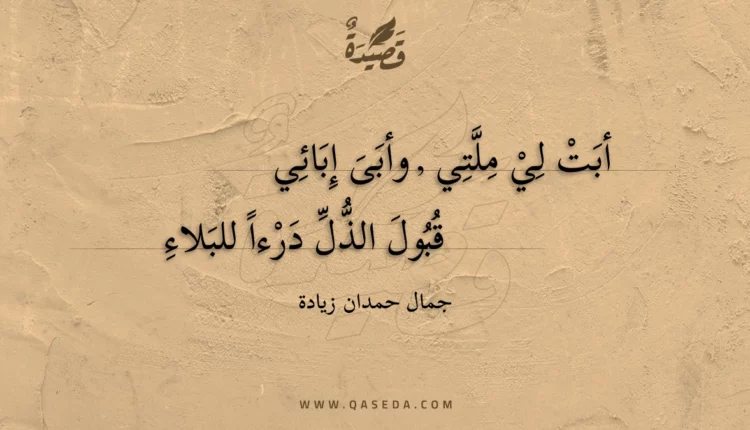 قَصِيْدَةٌ
أبَتْ لِيْ مِلَّتِي , وأبَىَ إِبَائِي
قُبُولَ الذُّلِّ دَرْءاً للبَلاءِ
جمال حمدان زيادة
WWW.QASEDA.COM